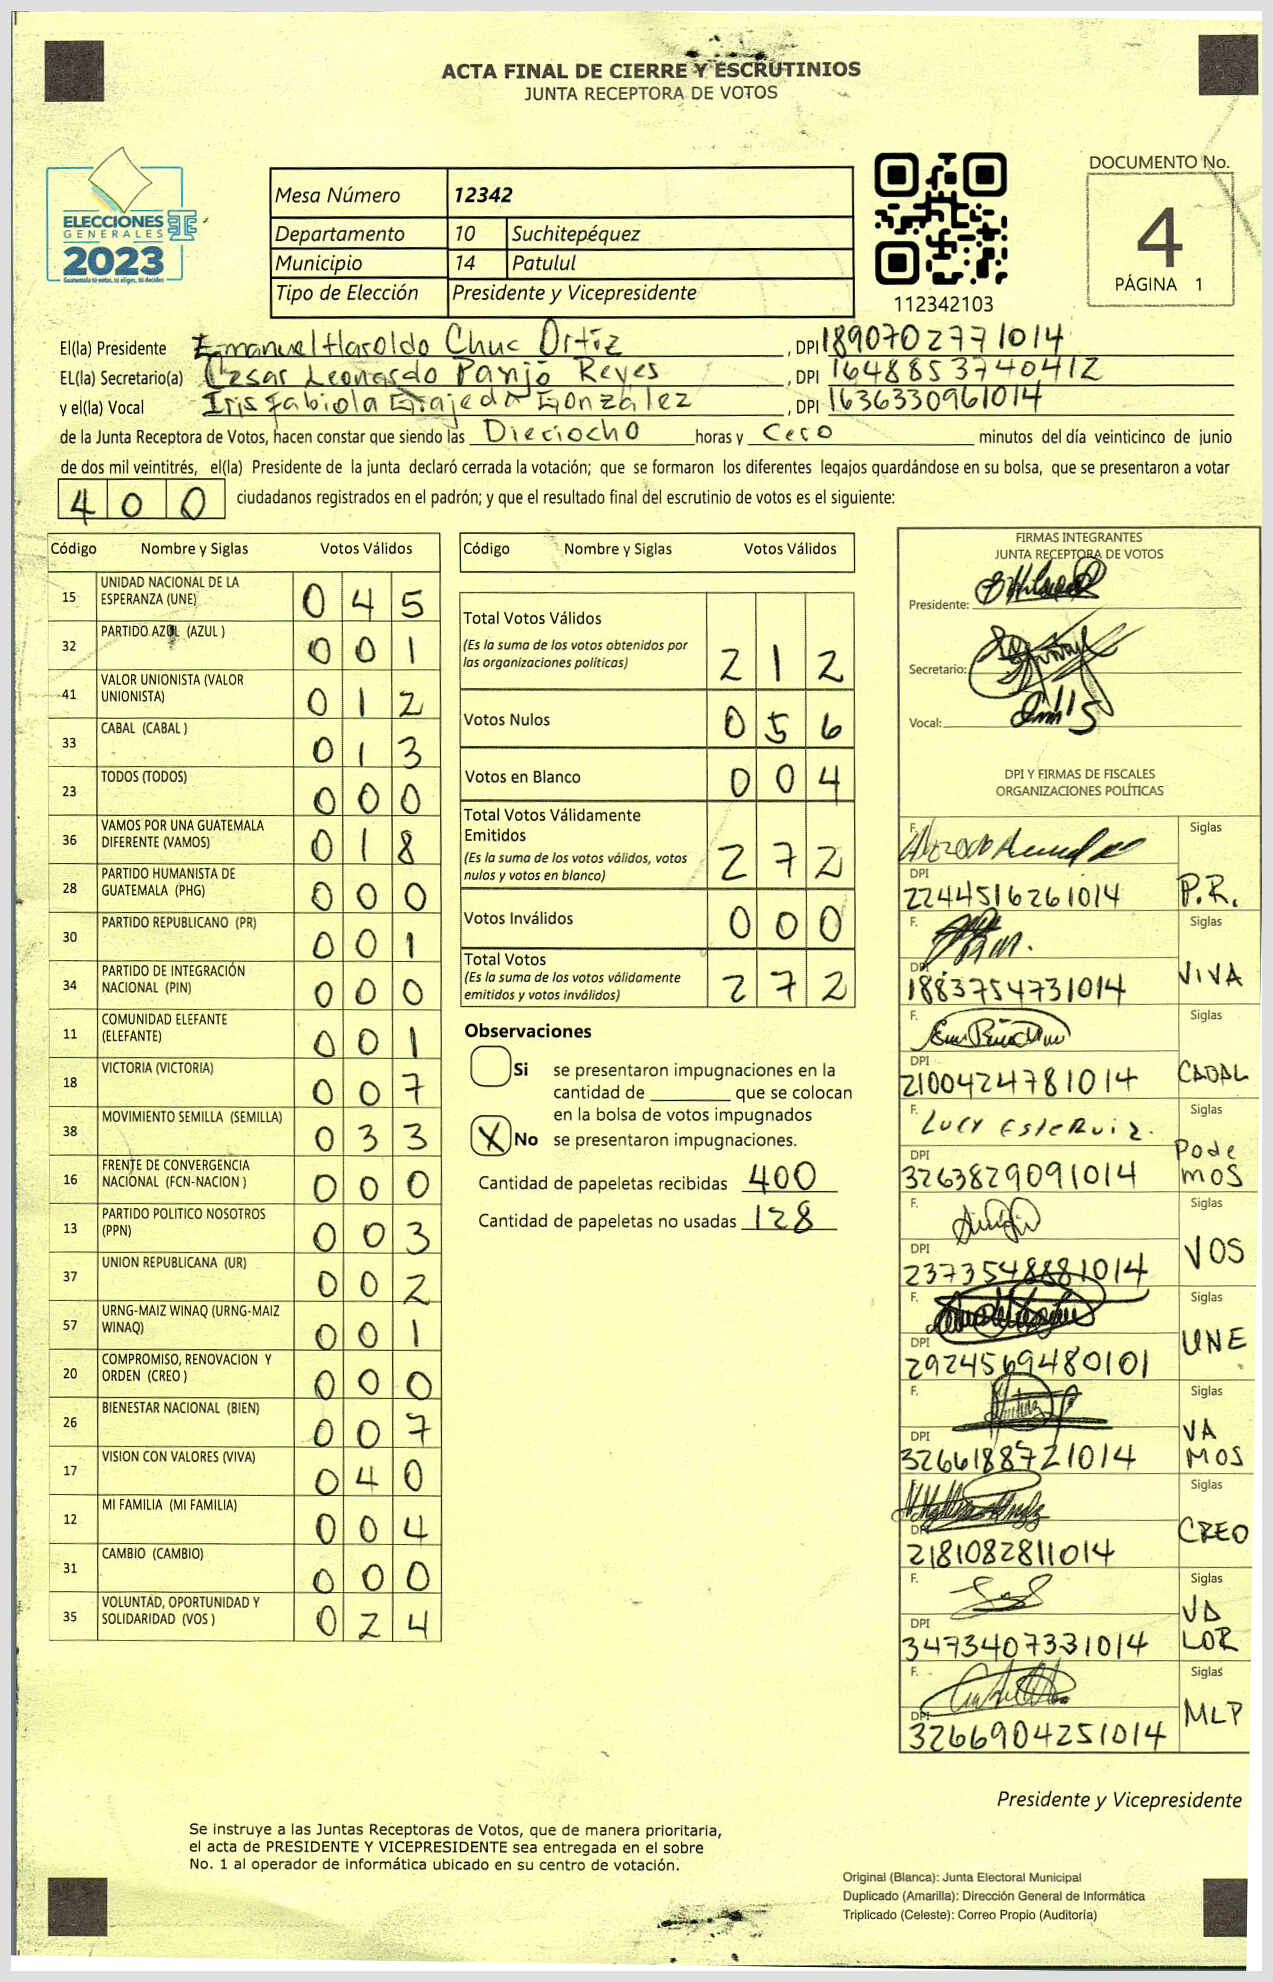 ACTA FINAL DE CIERRE Y ESCRUTINIOS
JUNTA RECEPTORA DE VOTOS
ELECCIONES
GENERALES
2023
Guatemala tú votas, tú eliges, tú decides
Mesa Número 12342
Departamento 10 Suchitepéquez
Municipio 14 Patulul
Tipo de Elección Presidente y Vicepresidente
112342103
DOCUMENTO No.
4
PÁGINA 1
El(la) Presidente Emanuel Haroldo Chuc Ortíz, DPI 1890702771014
EL(la) Secretario(a) Cesar Leonardo Panjó Reyes, DPI 1648853740412
y el(la) Vocal Iris Fabiola Grajeda González, DPI 1636330961014
de la Junta Receptora de Votos, hacen constar que siendo las Dieciocho horas y Cero minutos del día veinticinco de junio
de dos mil veintitrés, el(la) Presidente de la junta declaró cerrada la votación; que se formaron los diferentes legajos guardándose en su bolsa, que se presentaron a votar
400 ciudadanos registrados en el padrón; y que el resultado final del escrutinio de votos es el siguiente:
Código Nombre y Siglas Votos Válidos
15 UNIDAD NACIONAL DE LA ESPERANZA (UNE) 045
32 PARTIDO AZUL (AZUL ) 001
41 VALOR UNIONISTA (VALOR UNIONISTA) 012
33 CABAL (CABAL ) 013
23 TODOS (TODOS) 000
36 VAMOS POR UNA GUATEMALA DIFERENTE (VAMOS) 018
28 PARTIDO HUMANISTA DE GUATEMALA (PHG) 000
30 PARTIDO REPUBLICANO (PR) 001
34 PARTIDO DE INTEGRACIÓN NACIONAL (PIN) 000
11 COMUNIDAD ELEFANTE (ELEFANTE) 001
18 VICTORIA (VICTORIA) 007
38 MOVIMIENTO SEMILLA (SEMILLA) 033
16 FRENTE DE CONVERGENCIA NACIONAL (FCN-NACION ) 000
13 PARTIDO POLITICO NOSOTROS (PPN) 003
37 UNION REPUBLICANA (UR) 002
57 URNG-MAIZ WINAQ (URNG-MAIZ WINAQ) 001
20 COMPROMISO, RENOVACION Y ORDEN (CREO ) 000
26 BIENESTAR NACIONAL (BIEN) 007
17 VISION CON VALORES (VIVA) 040
12 MI FAMILIA (MI FAMILIA) 004
31 CAMBIO (CAMBIO) 000
35 VOLUNTAD, OPORTUNIDAD Y SOLIDARIDAD (VOS ) 024
Código Nombre y Siglas Votos Válidos
Total Votos Válidos 212
(Es la suma de los votos obtenidos por
las organizaciones políticas)
Votos Nulos 056
Votos en Blanco 004
Total Votos Válidamente
Emitidos 272
(Es la suma de los votos válidos, votos
nulos y votos en blanco)
Votos Inválidos 000
Total Votos 272
(Es la suma de los votos válidamente
emitidos y votos inválidos)
Observaciones
Si se presentaron impugnaciones en la
cantidad de ________ que se colocan
en la bolsa de votos impugnados
X No se presentaron impugnaciones.
Cantidad de papeletas recibidas 400
Cantidad de papeletas no usadas 128
FIRMAS INTEGRANTES
JUNTA RECEPTORA DE VOTOS
Presidente:
Secretario:
Vocal:
DPI Y FIRMAS DE FISCALES
ORGANIZACIONES POLÍTICAS
F. Siglas
DPI 2244516261014 P.R.
F. Siglas
DPI 1883754731014 VIVA
F. Siglas
DPI 2100424781014 CABAL
F. Siglas
DPI 3263829091014 Podemos
F. Siglas
DPI 2373548881014 VOS
F. Siglas
DPI 2924569480101 UNE
F. Siglas
DPI 3266188721014 VAMOS
F. Siglas
DPI 2181082811014 CREO
F. Siglas
DPI 3473407331014 VALOR
F. Siglas
DPI 3266904251014 MLP
Presidente y Vicepresidente
Se instruye a las Juntas Receptoras de Votos, que de manera prioritaria,
el acta de PRESIDENTE Y VICEPRESIDENTE sea entregada en el sobre
No. 1 al operador de informática ubicado en su centro de votación.
Original (Blanca): Junta Electoral Municipal
Duplicado (Amarilla): Dirección General de Informática
Triplicado (Celeste): Correo Propio (Auditoría)